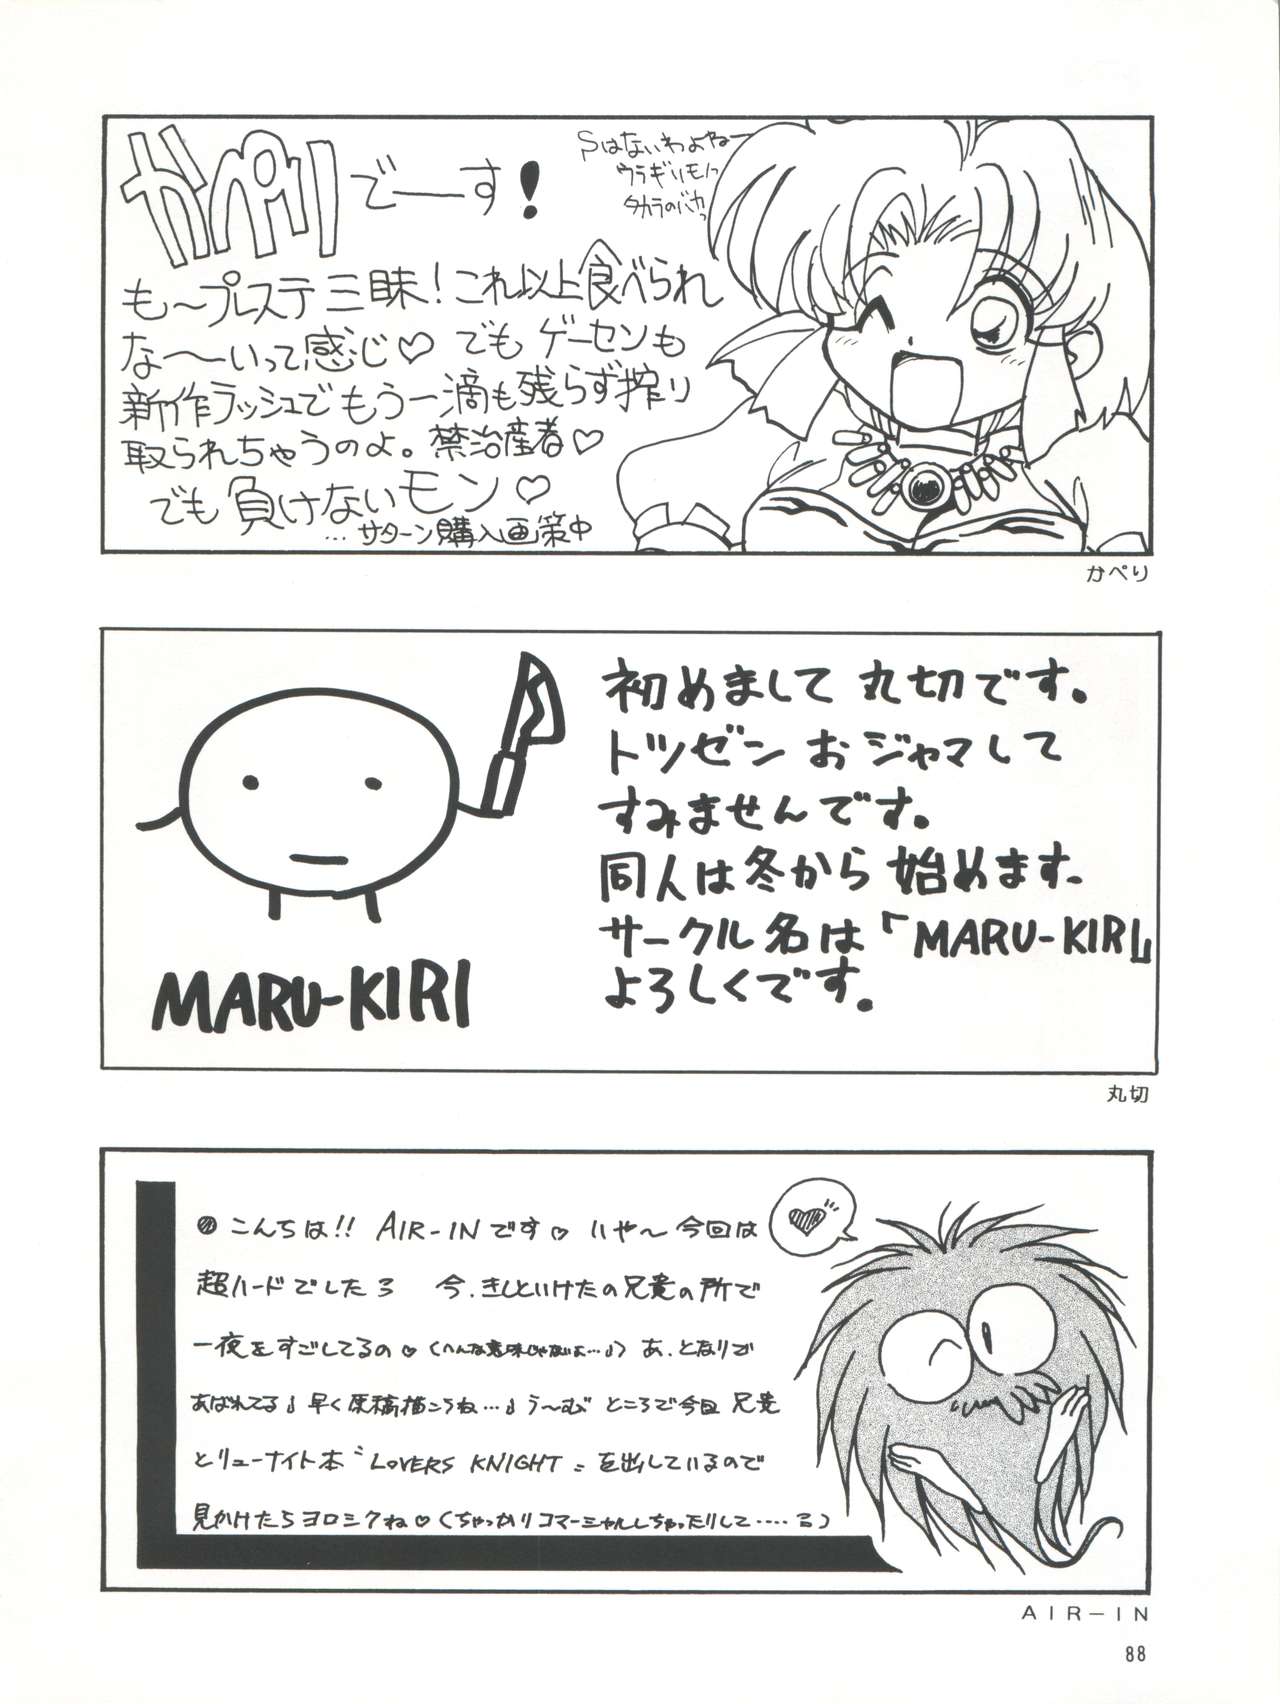 かぺりでーーす!
Sはないわよねー
ウラギリモノっ
タカラのバカっ
も〜プレステ三昧!これ以上食べられ
な〜〜いって感じ♡でもゲーセンも
新作ラッシュでもう一滴も残らず搾り
取られちゃうのよ。禁治産者♡
でも負けないモン♡
…サターン購入画策中
かぺり
初めまして丸切です。
トツゼンおジャマして
すみませんです。
同人は冬から始めます。
サークル名は「MARU-KIRI」
よろしくです。
MARU-KIRI
丸切
こんちは!! AIR-INです♡ いや〜今回は
超ハードでしたろ 今、きしといけたの兄貴の所で
一夜をすごしてるの♡(へんな意味じゃないよ…♪)あ、となりで
あばれてる♪早く原稿描こうね…♪う〜むところで今回兄貴
とリューナイト本〝LOVERS KNIGHT〟を出しているので
見かけたらヨロシクね♡(ちゃっかりコマーシャルしちゃったりして……ろ)
AIR-IN
88